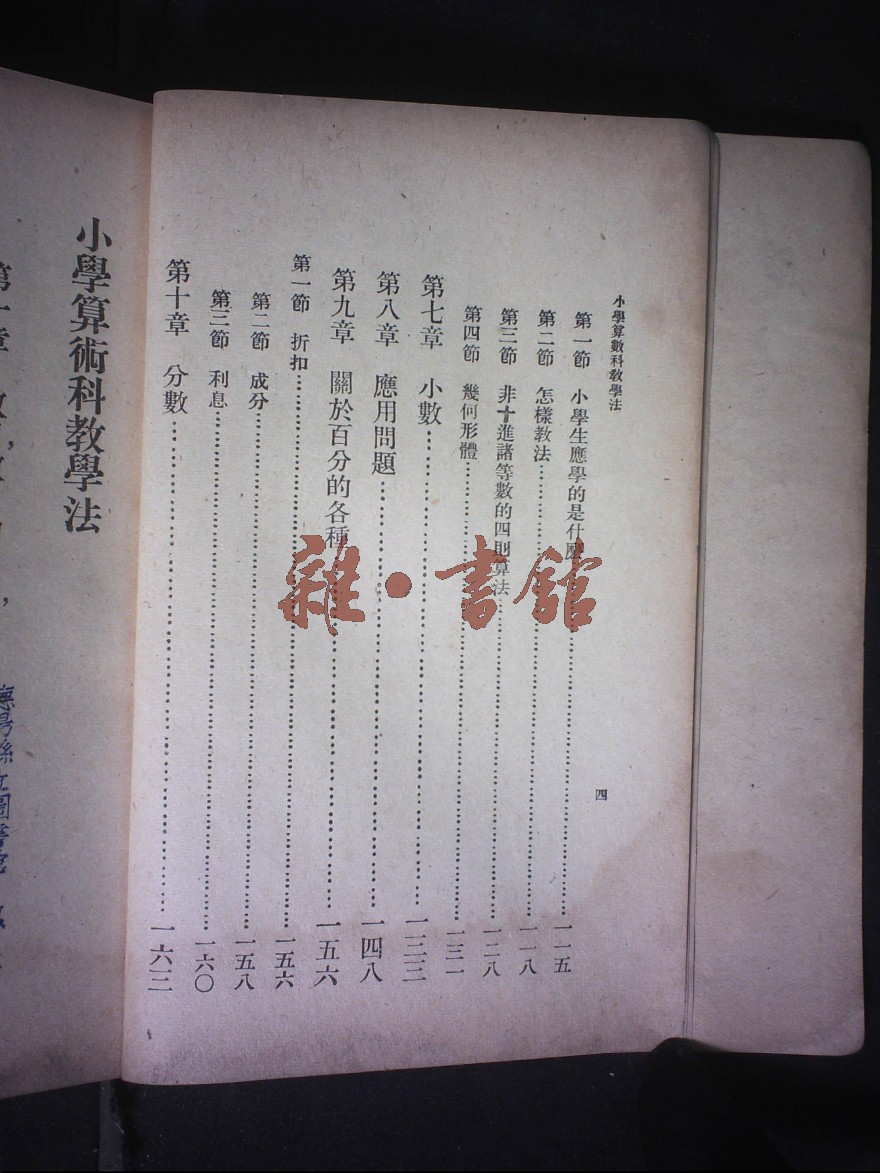 小學算數科教學法
四
第一節 小學生應學的是什麼……一一五
第二節 怎樣教法……一一八
第三節 非十進諸等數的四則算法……一二八
第四節 幾何形體……一三一
第七章 小數……一三三
第八章 應用問題……一四八
第九章 關於百分的各種……一五六
第一節 折扣……一五六
第二節 成分……一五八
第三節 利息……一六〇
第十章 分數……一六三
雜·書館
小學算術科教學法